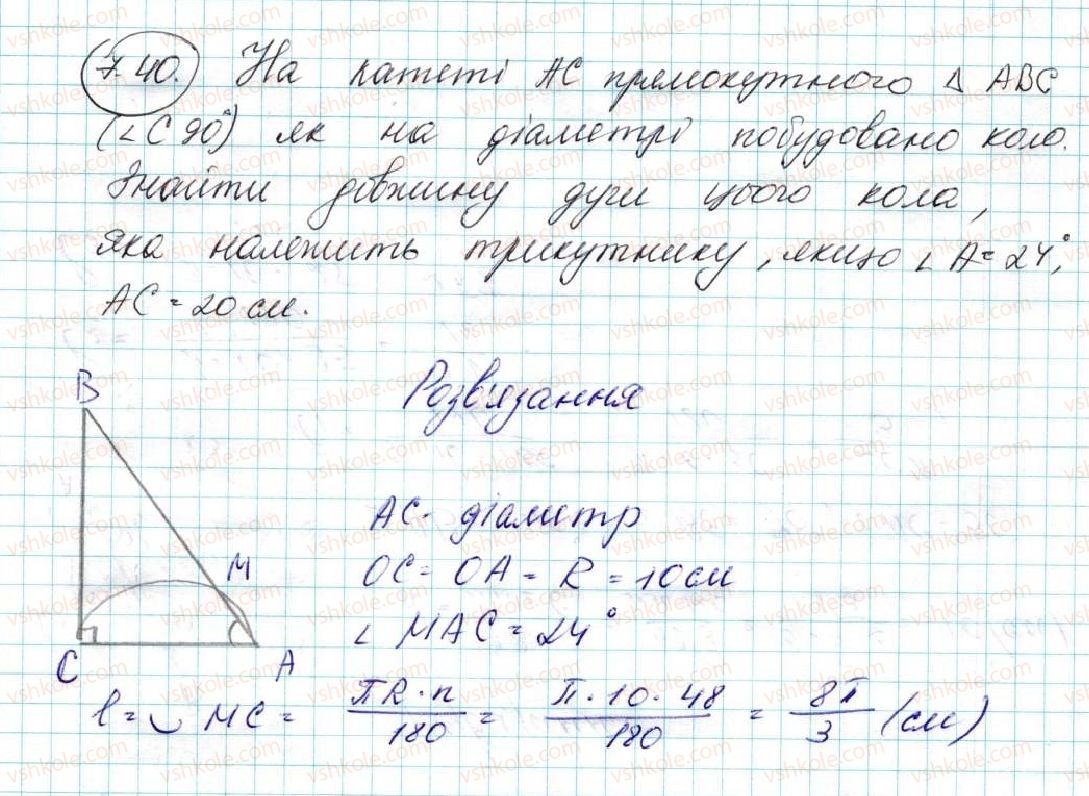 7.40. На катеті AC прямокутного Δ ABC
(∠C 90°) як на діаметрі побудовано коло.
Знайти довжину дуги цього кола,
яка належить трикутнику, якщо ∠ A = 24°,
AC = 20 см.
Розв'язання
B
M
C
A
AC - діаметр
OC = OA = R = 10 см
∠ MAC = 24°
l = ◡ MC = ПR · n / 180 = П · 10 · 48 / 180 = 8П / 3 (см)
vshkole.com